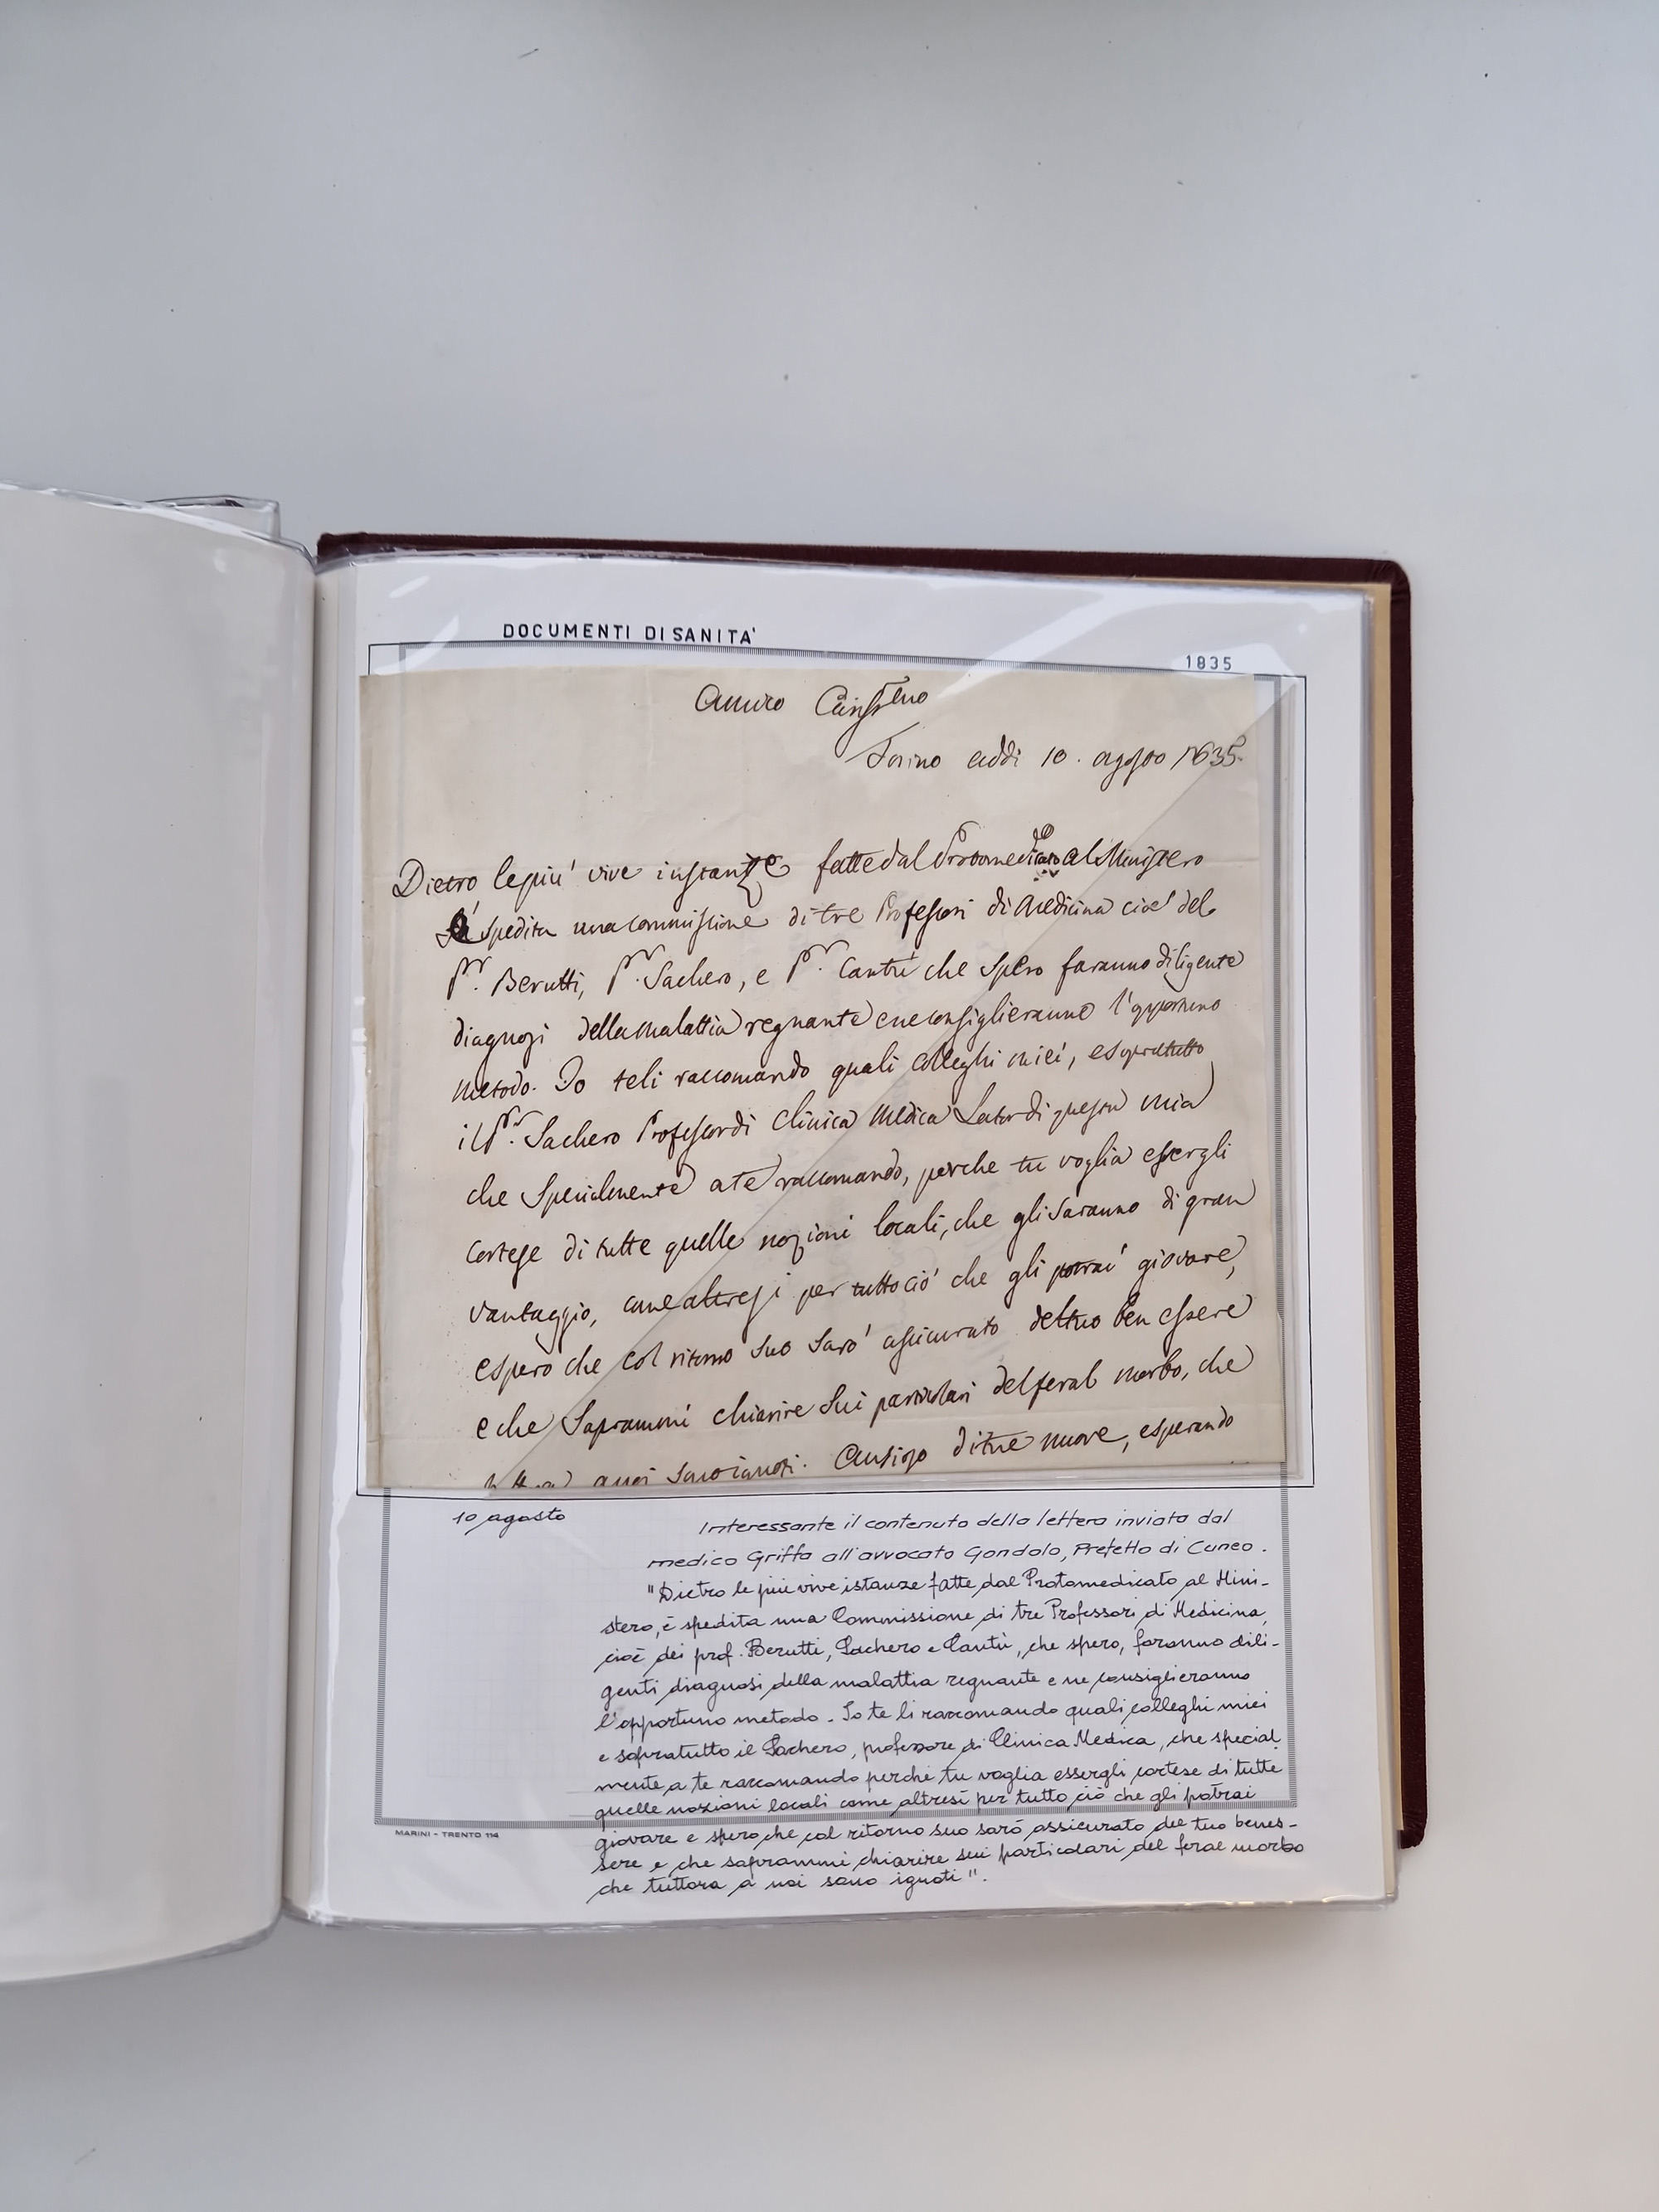 DOCUMENTI DI SANITA'
1835
Amico Cariss.mo
Torino addi 10. agosto 1835.
Dietro le piu' vive instanze fatte dal Protomedicato al Ministero
è spedita una commissione di tre Professori di Medicina cioe' del
Pr. Berutti, Pr. Sachero, e Pr. Cantu' che spero faranno diligente
diagnosi della malattia regnante e ne consiglieranno l'opportuno
metodo. Io te li raccomando quali colleghi miei, e sopratutto
il Pr. Sachero Professor di Clinica Medica Lator di questa mia
che specialmente a te raccomando, perche tu voglia essergli
cortese di tutte quelle nozioni locali, che gli saranno di gran
vantaggio, come altresi per tutto cio' che gli potrai giovare,
e spero che col ritorno suo saro' assicurato del tuo ben essere
e che saprammi chiarire sui particolari del feral morbo, che
a noi sono ignoti. Ansioso di tue nuove, esperando
10 agosto
Interessante il contenuto della lettera inviata dal
medico Griffa all'avvocato Gondolo, Prefetto di Cuneo.
"Dietro le più vive istanze fatte dal Protomedicato al Mini-
stero, è spedita una Commissione di tre Professori di Medicina,
cioè dei prof. Berutti, Sachero e Cantù, che spero, faranno dili-
genti diagnosi della malattia regnante e ne consiglieranno
l'opportuno metodo. Io te li raccomando quali colleghi miei
e sopratutto il Sachero, professore di Clinica Medica, che special
mente a te raccomando perché tu voglia essergli cortese di tutte
quelle nozioni locali come altresì per tutto ciò che gli potrai
giovare e spero che col ritorno suo sarò assicurato del tuo benes-
sere e che saprammi chiarire sui particolari del feral morbo
che tuttora a noi sono ignoti".
MARINI - TRENTO 114